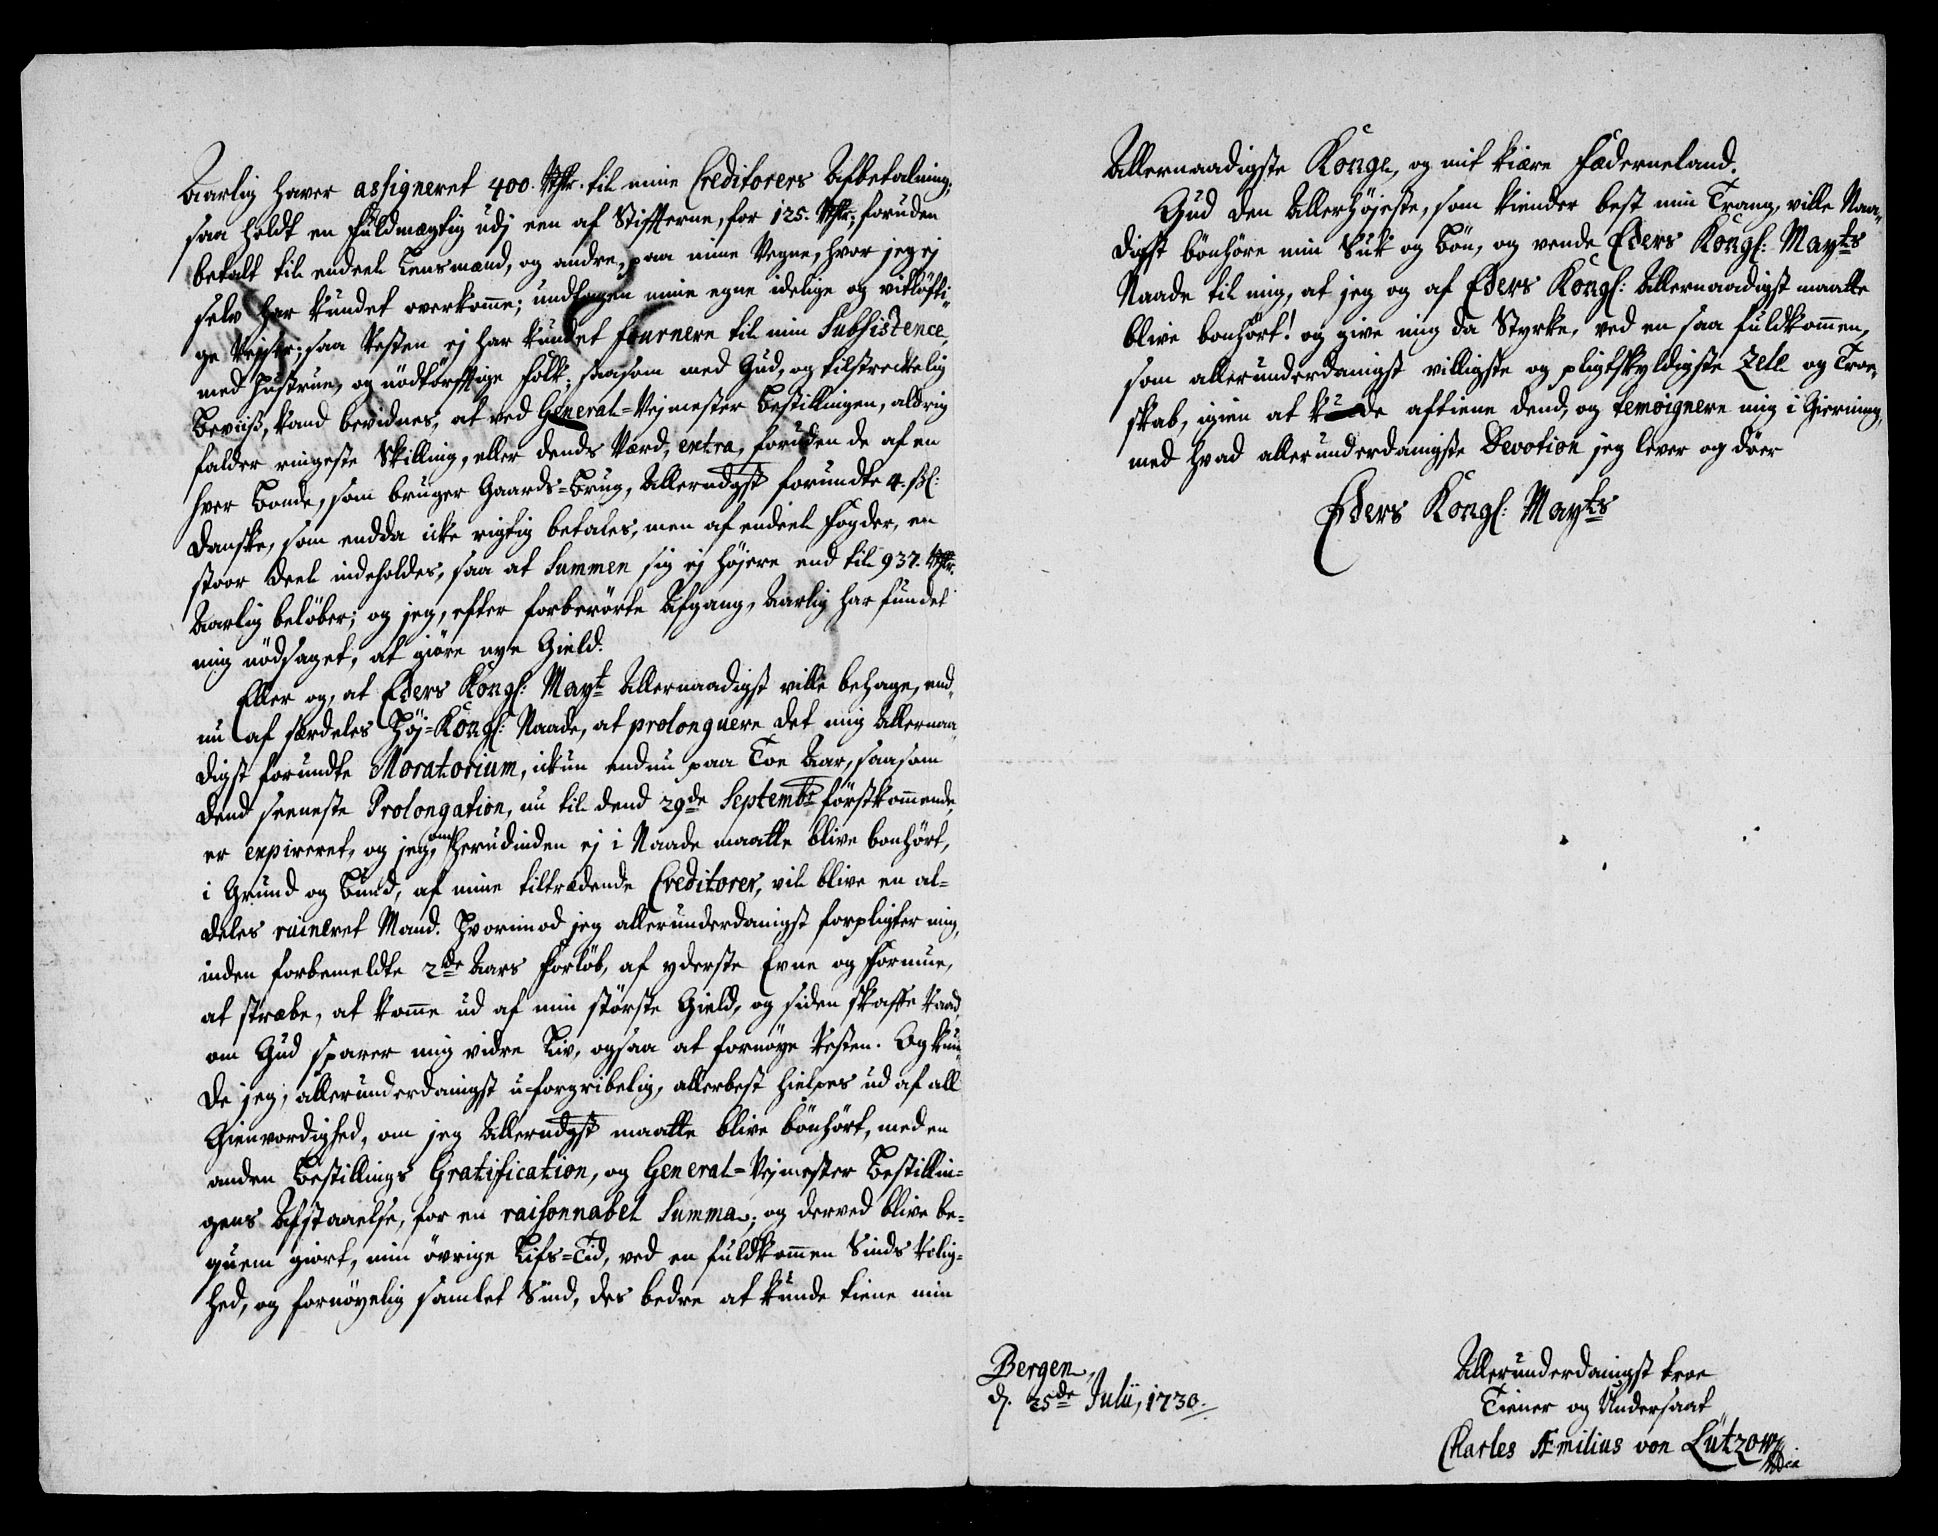 Aarlig haver assigneret 400. Rdlr. til mine Creditorers Afbetalning,
saa holdt en Fuldmægtig udj een af Stiffterne, for 125. Rdlr; foruden
betalt til endeel Lensmænd, og andre, paa mine Vegne, hvor jeg ej
selv har kundet overkome; undtagen mine egne idelige og vitløfti„
ge Rejser; saa Resten ej har kundet fournere til min Subsistence,
med Hustrue, og nödtörfftige Folk; saasom med Gud, og tilstreckelig
Beviiß, kand bevidnes, at ved General=Vejmester Bestillingen, aldrig
falder ringeste Skilling, eller dends Værd, extra, foruden de af en
hver Bonde, som bruger Gaards=Brug, Allerndgst forundte 4. ßl:
Danske, som endda icke rigtig betales, men af endeel Fogder, en
stoor Deel indeholdes, saa at Summen sig ej højere end til 937. Rdlr.
Aarlig belöber; og jeg, efter forberörte Afgang, Aarlig har fundet
mig nödsaget, at giöre nye Gield.
Eller og, at Eders Kongl: Mayt Allernaadigst ville behage, end„
nu af særdeles Høj=Kongl: Naade, at prolonguere det mig Allernaa„
digst forundte Moratorium, ickun endnu paa Toe Aar, saasom
dend seeneste Prolongation, nu til dend 29de Septembr förstkommende,
er expireret, og jeg, om herudinden ej i Naade maatte blive bonhört,
i Grund og Bund, af mine tiltrædende Creditorer, vil blive en al=
deles ruineret Mand. Hvorimod jeg allerunderdanigst forpligter mig,
inden forbemeldte 2de Aars Forlöb, af yderste Evne og Formue,
at stræbe, at kome ud af min störste Gield, og siden skaffe Raad,
om Gud sparer mig vidre Liv, ogsaa at fornöye Resten. Og kun„
de jeg, allerunderdanigst u-forgribelig, allerbest hielpes ud af all
Gienvordighed, om jeg Allerndgst maatte blive bönhört, med en
anden Bestillings Gratification, og General=Vejmester Bestillin=
gens Afstaaelse, for en raisonnabel Summa; og derved blive be=
quem giort, min övrige Lifs=Tid, ved en fuldkommen Sinds Rolig=
hed, og fornöyelig samlet Sind, des bedre at kunde tiene min
Allernaadigste Konge, og mit kiære Fæderneland.
Gud den Allerhöjeste, som kiender best min Trang, ville Naa„
digst bönhöre min Suk og Bön, og vende Eders Kongl: Mayts
Naade til mig, at jeg og af Eders Kongl: Allernaadigst maatte
blive bonhört! og give mig da Styrke, ved en saa fuldkommen,
som allerunderdanigst villigste og pligtskyldigste Zele og Troe„
skab, igien at kunde aftiene dend, og temoignere mig i Gierning,
med hvad allerunderdanigste Devotion jeg lever og döer
Eders Kongl: Mayts
Bergen,
d. 25de Julii, 1730.
Allerunderdanigst troe
Tiener og Undersaat
Charles Æmilius von Lützow